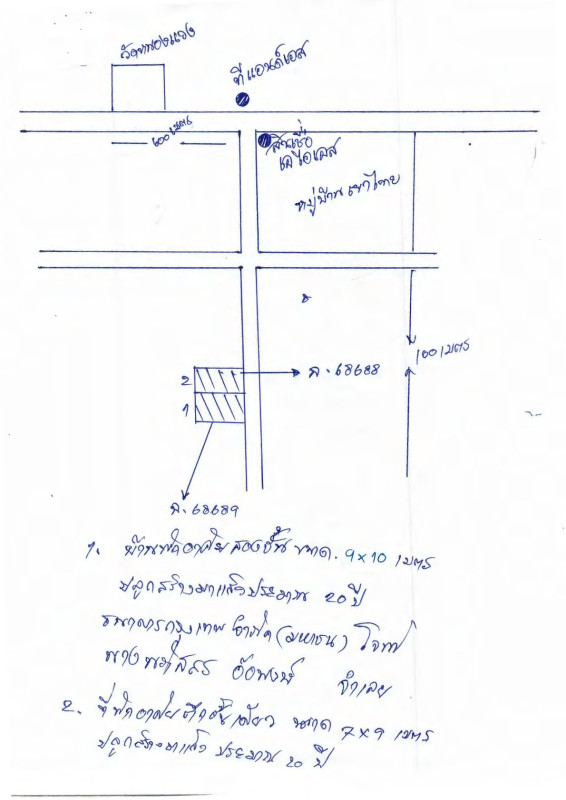 วัดหนองแวง
ที แอนด์ เอส
600 เมตร
สินเชื่อ
หมู่บ้าน
100 เมตร
2
1
ฉ. 68688
ฉ. 68689
1. บ้านพักอาศัยสองชั้น ขนาด. 9x10 เมตร
ปลูกสร้างมาแล้วประมาณ 20 ปี
ธนาคารกรุงเทพ จำกัด (มหาชน) โจทก์
นาง จำเลย
2. ที่พักอาศัยตึกชั้นเดียว ขนาด 7x9 เมตร
ปลูกสร้างมาแล้ว ประมาณ 20 ปี